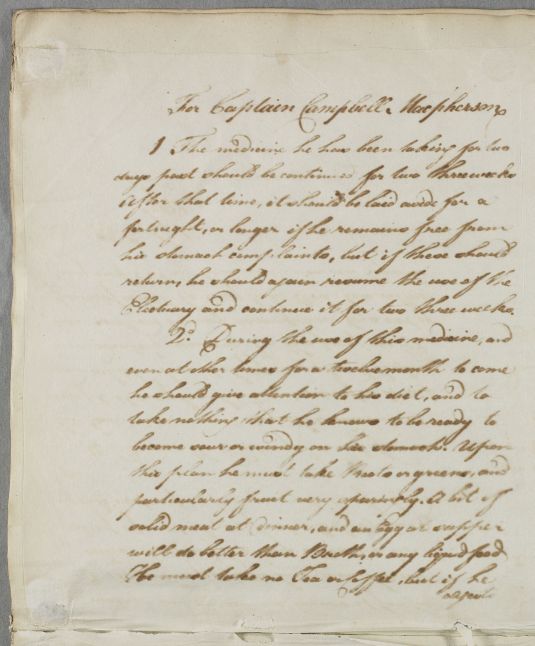 For Captain Campbell Macpherson
1 The medicine he has been taking for two
days past should be continued for two three weeks
After that time, it should be laid aside for a
fortnight, or longer if he remains free from
his stomach complaints, but if these should
return, he should again resume the use of the
Electuary and continue it for two three weeks.
2d. During the use of this medicine, and
even at other times for a twelvemonth to come
he should give attention to his diet, and to
take nothing that he knows to be ready to
become sour or windy on his stomach. Upon
this plan he must take Roots or greens, and
particularly fruit very sparingly. A bit of
solid meat at dinner, and an Egg at supper
will do better than Broth, or any liquid food
He must take no Tea or Coffee, but if he